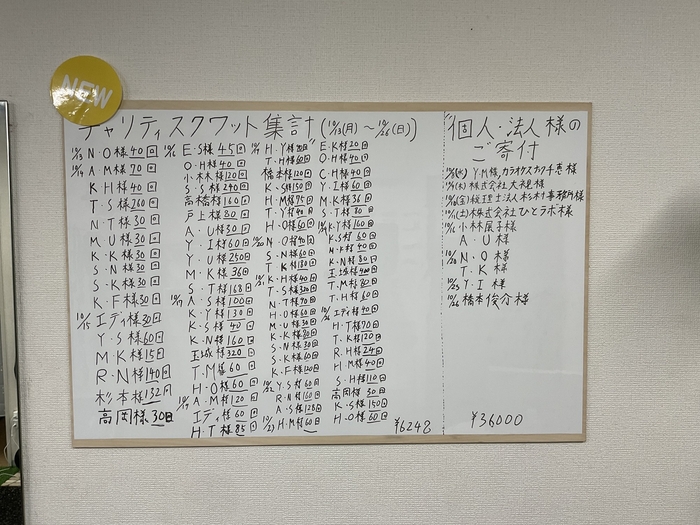 NEW
チャリティスクワット集計(10/13(月)～10/26(日))
10/13 N・O様40回
10/14 A・M様70回
K・H様40回
T・S様260回
N・T様30回
M・U様30回
K・K様30回
S・N様30回
S・K様30回
K・F様30回
10/15 エディ様30回
Y・S様60回
M・K様15回
R・N様140回
杉本様132回
高岡様30回
10/16 E・S様45回
O・H様40回
小林様120回
S・S様240回
高橋様160回
戸上様80回
A・U様30回
Y・I様60回
Y・U様250回
M・K様36回
T・S様168回
10/17 A・S様100回
K・Y様130回
K・S様40回
K・N様160回
玉城様320回
T・M様60回
H・O様60回
10/19 A・M様120回
エディ様60回
H・T様85回
T・H様60回
橋本様120回
K・S様150回
H・M様75回
T・Y様40回
H・O様60回
10/20 N・O様40回
S・N様60回
T・K様180回
10/21 K・H様40回
T・S様320回
N・T様70回
H・O様60回
M・U様30回
K・K様30回
S・N様30回
S・K様60回
K・F様60回
10/22 Y・S様60回
R・N様160回
A・S様128回
10/23 H・M様60回
E・K様20回
O・H様40回
C・H様40回
Y・I様60回
M・K様36回
S・T様80回
10/24 K・Y様160回
K・S様60回
M・K様40回
K・N様80回
玉城様400回
T・M様80回
T・H様60回
10/26 エディ様40回
H・T様90回
T・K様120回
R・H様24回
H・M様40回
S・H様110回
高岡様30回
K・S様150回
H・O様60回
¥6248
個人・法人様の
ご寄付
Y・M様,カラオケスナック千恵様
(木)株式会社大視様
(金)税理士法人杉村事務所様
(土)株式会社ひとラボ様
小林風子様
A・U様
10/20 N・O様
T・K様
10/23 Y・I様
10/26 橋本俊介様
¥36000